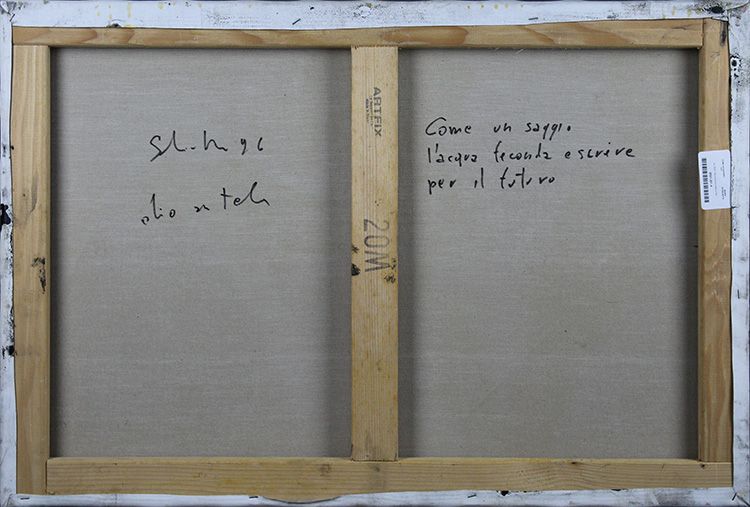 96
olio su tela
ARTFIX
20M
Come un saggio
l'acqua feconda e scrive
per il futuro